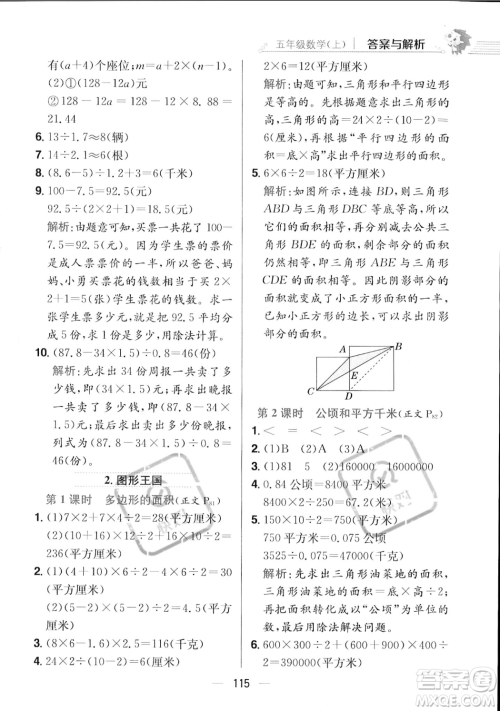 五年级数学(上) 答案与解析
有(a+4)个座位;(128-12a)元
②128-12a=128-12×8=
32(元)
6. 13÷1.7≈8(辆)
7. 14÷2.1≈6(根)
8. (8.6-5)÷1.2+3=6(千米)
9. 100-7.5=92.5(元)
92.5÷(2×2+1)=18.5(元)
解析:由题意可知,买票一共花了
100-7.5=92.5(元)。因为学生票的票价
是成人票票价的一半,所以爸爸、妈
妈、小军买票花的钱数,就相当于买
2×2+1=5(张)学生票花的钱数。求
一张学生票的钱数,就把92.5平均分
成5份,求每份是多少,用除法计算。
10. (87.8-34×1.5)÷0.8=46(份)
解析:先求出34份周报一共卖了多
少钱,即(34×1.5)元;再求出晚报一
共卖了多少钱,即(87.8-34×1.5)
元;最后用除法求出晚报卖的份数,
列式为(87.8-34×1.5)÷0.8=
46(份)。
2. 图形王国
第1课时 多边形的面积(正文P81)
1. (1)7×2+(7+2)×4÷2=
32(平方厘米)
(2)10×16+(10+9)×8÷2=
236(平方厘米)
2. (1)(4+4)×6÷2-4×6÷2=
12(平方厘米)
(2)(5+10)×5÷2-5×3÷2=
30(平方厘米)
3. (8×6-1.5×6)×30=1170(千克)
4. 24×2÷8=6(厘米)
2×6=12(平方厘米)
解析:由题可知,三角形与平行四边形
是等高的。先根据题意求出三角形或
平行四边形的高:24×2÷(10-2)=
6(厘米),再根据“平行四边形的面
积=底×高”求出平行四边形的面积。
5. 6×6÷2=18(平方厘米)
解析:如图所示,连接BD,则三角形
ABD与三角形DBC等底等高,因此
两个三角形面积相等,再分别减去公共
三角形BDE的面积,剩余部分的面积
仍然相等,即三角形ABE与三角形
CDE的面积相等。因此阴影部分的
面积就等于小正方形面积的一半。
求出小正方形面积的一半,即求出阴影
部分的面积。
A B E C D
第2课时 公顷和平方千米(正文P82)
1. < = < = >
2. (1)B (2)A (3)B
3. (1)81 5 (2)160000 16
4. 0.84公顷=8400平方米
8400÷(20×7)=60(天)
5. 150×10÷2=750(平方米)
750平方米=0.075公顷
3525÷0.075=47000(千克)
解析:先求出三角形油菜地的面积,
三角形油菜地的面积=底×高÷2;
再把面积改写成以“公顷”为单位的
数,最后用除法解决问题。
6. 600×300+(200+400)×700÷
2=390000(平方米)
115